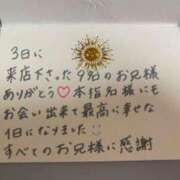 3日に
来店下さった9名のお兄様
ありがとう♡本指名様にも
お会い出来て最高に幸せな
1日になりました
すべてのお兄様に感謝